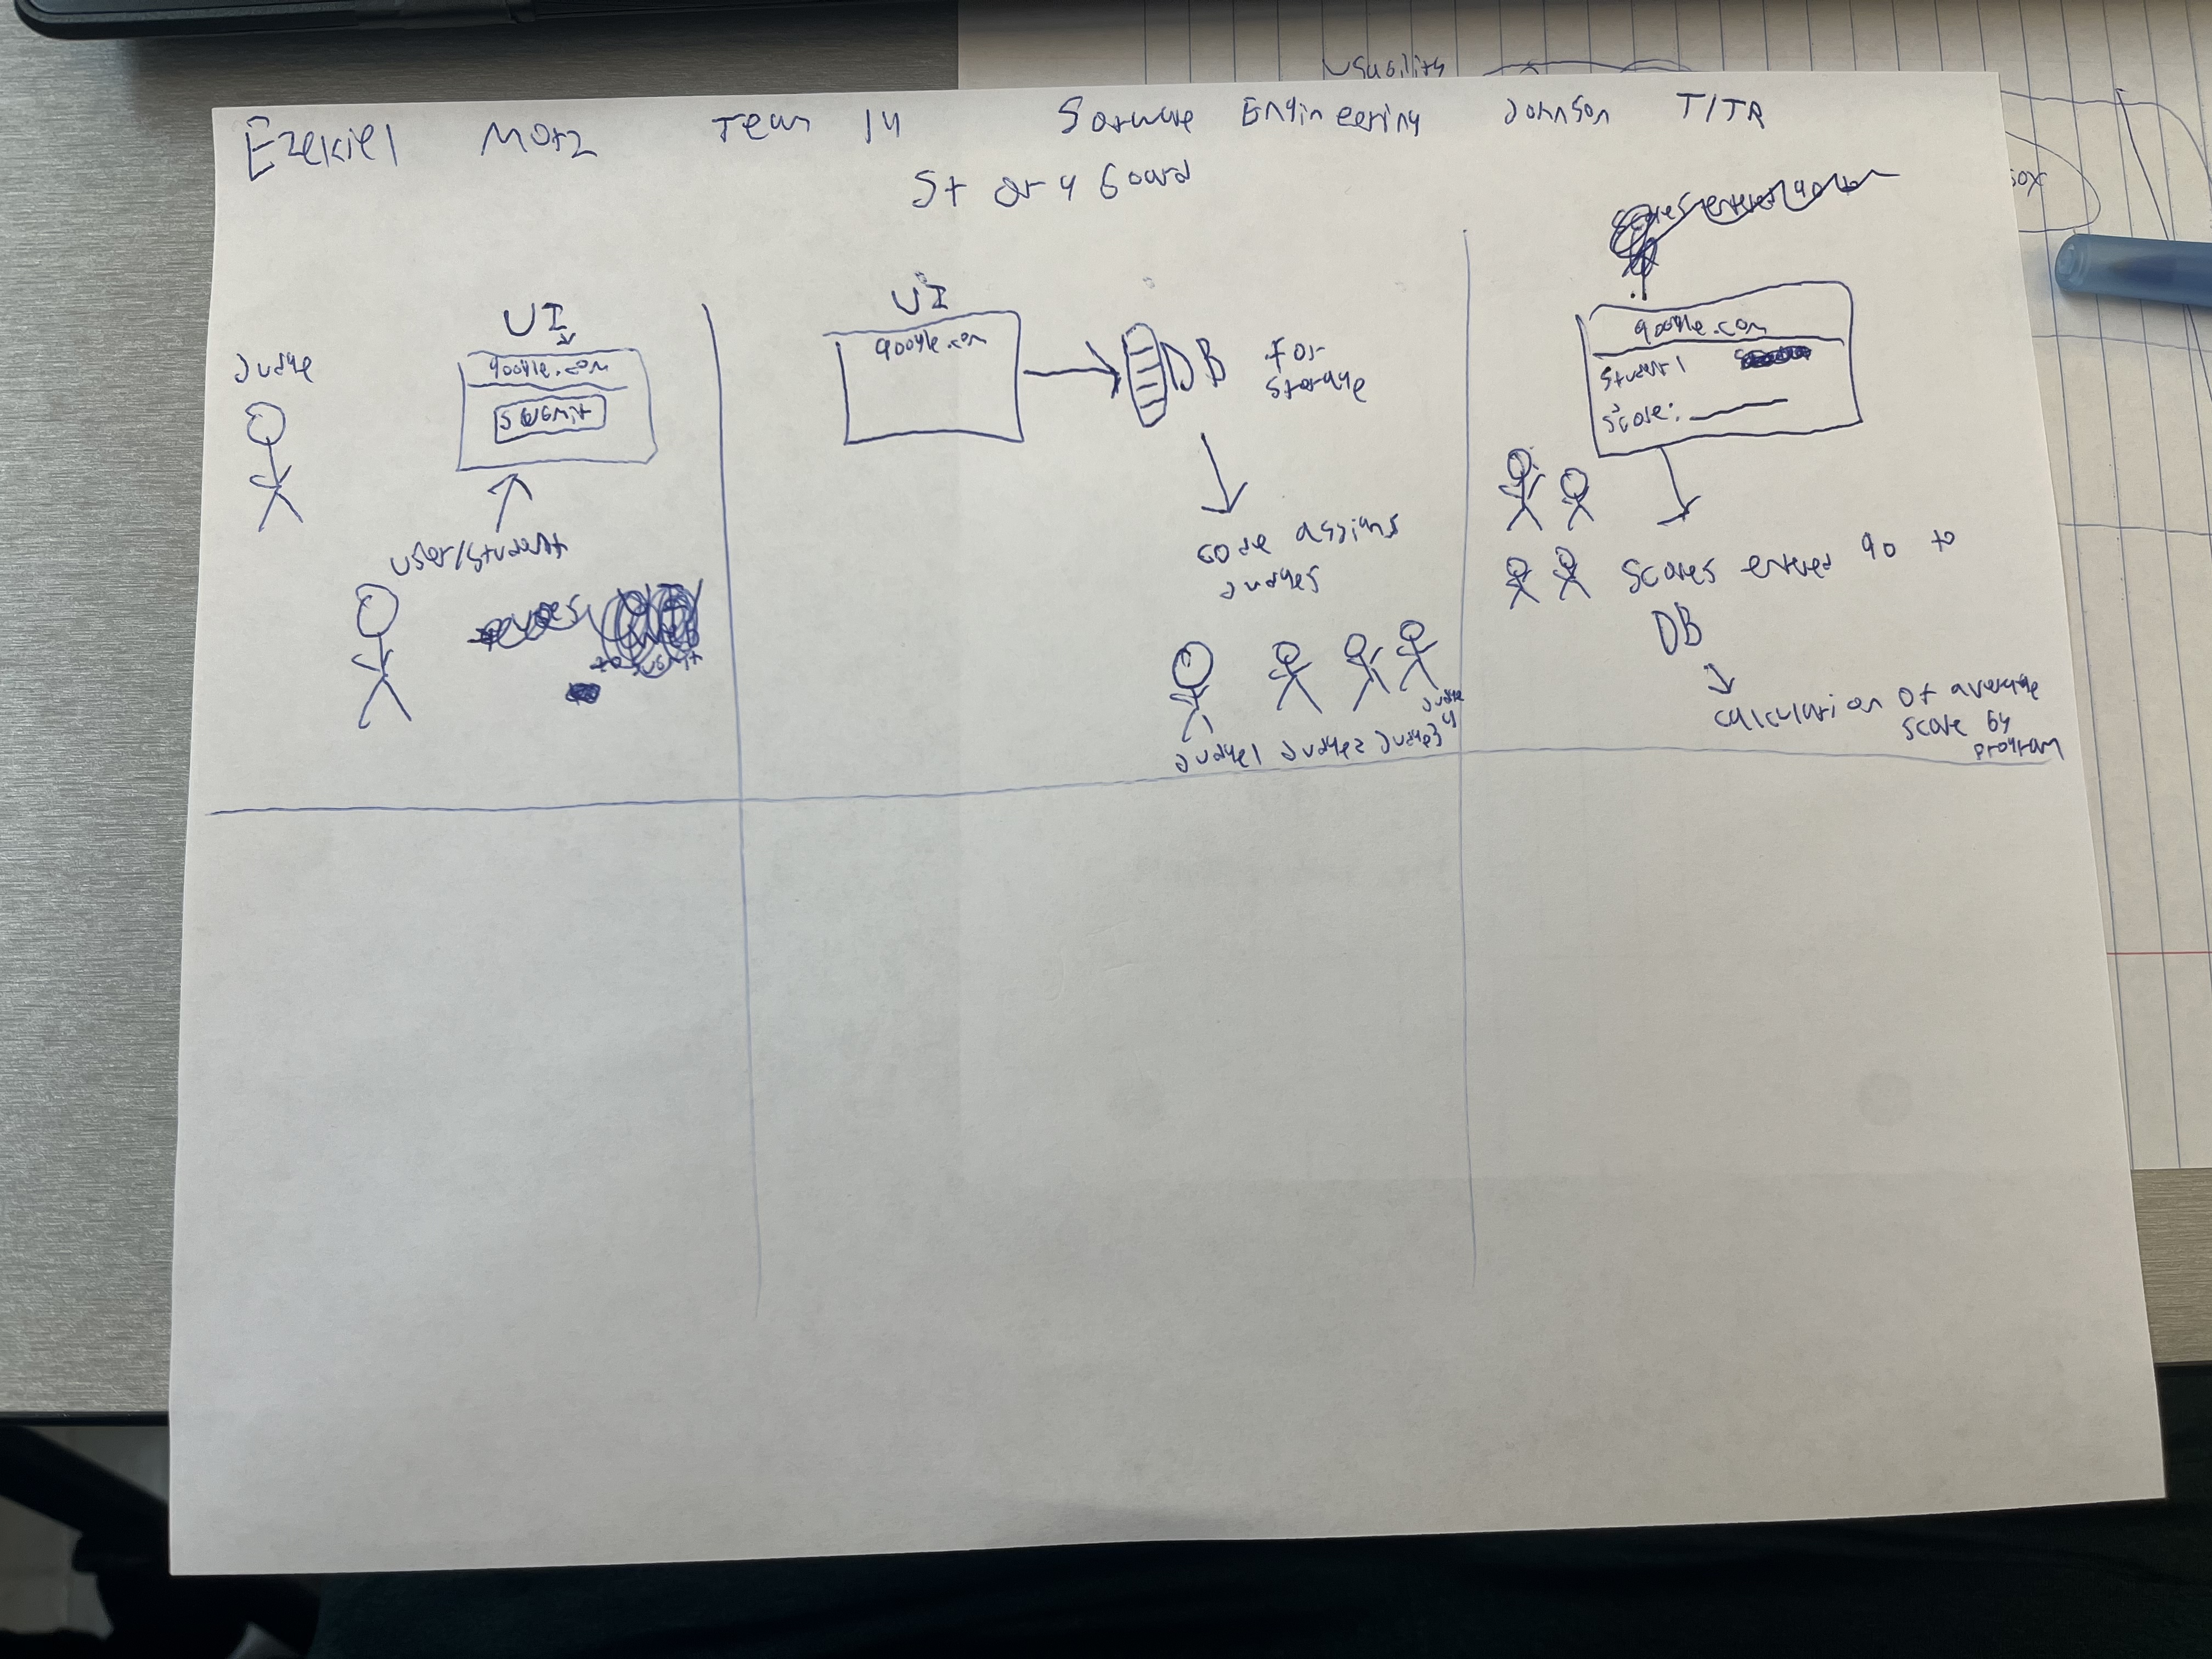 Usability
Ezekiel Motz Team 14 Software Engineering Johnson T/TR
Story Board
Judge
UI
google.com
submit
user/student
to submit
UI
google.com
DB for
storage
code assigns
judges
Judge1 Judge2 Judge3 Judge
4
scores entered go to
google.com
Student 1
Score:
scores entered go to
DB
calculation of average
score by
program
box